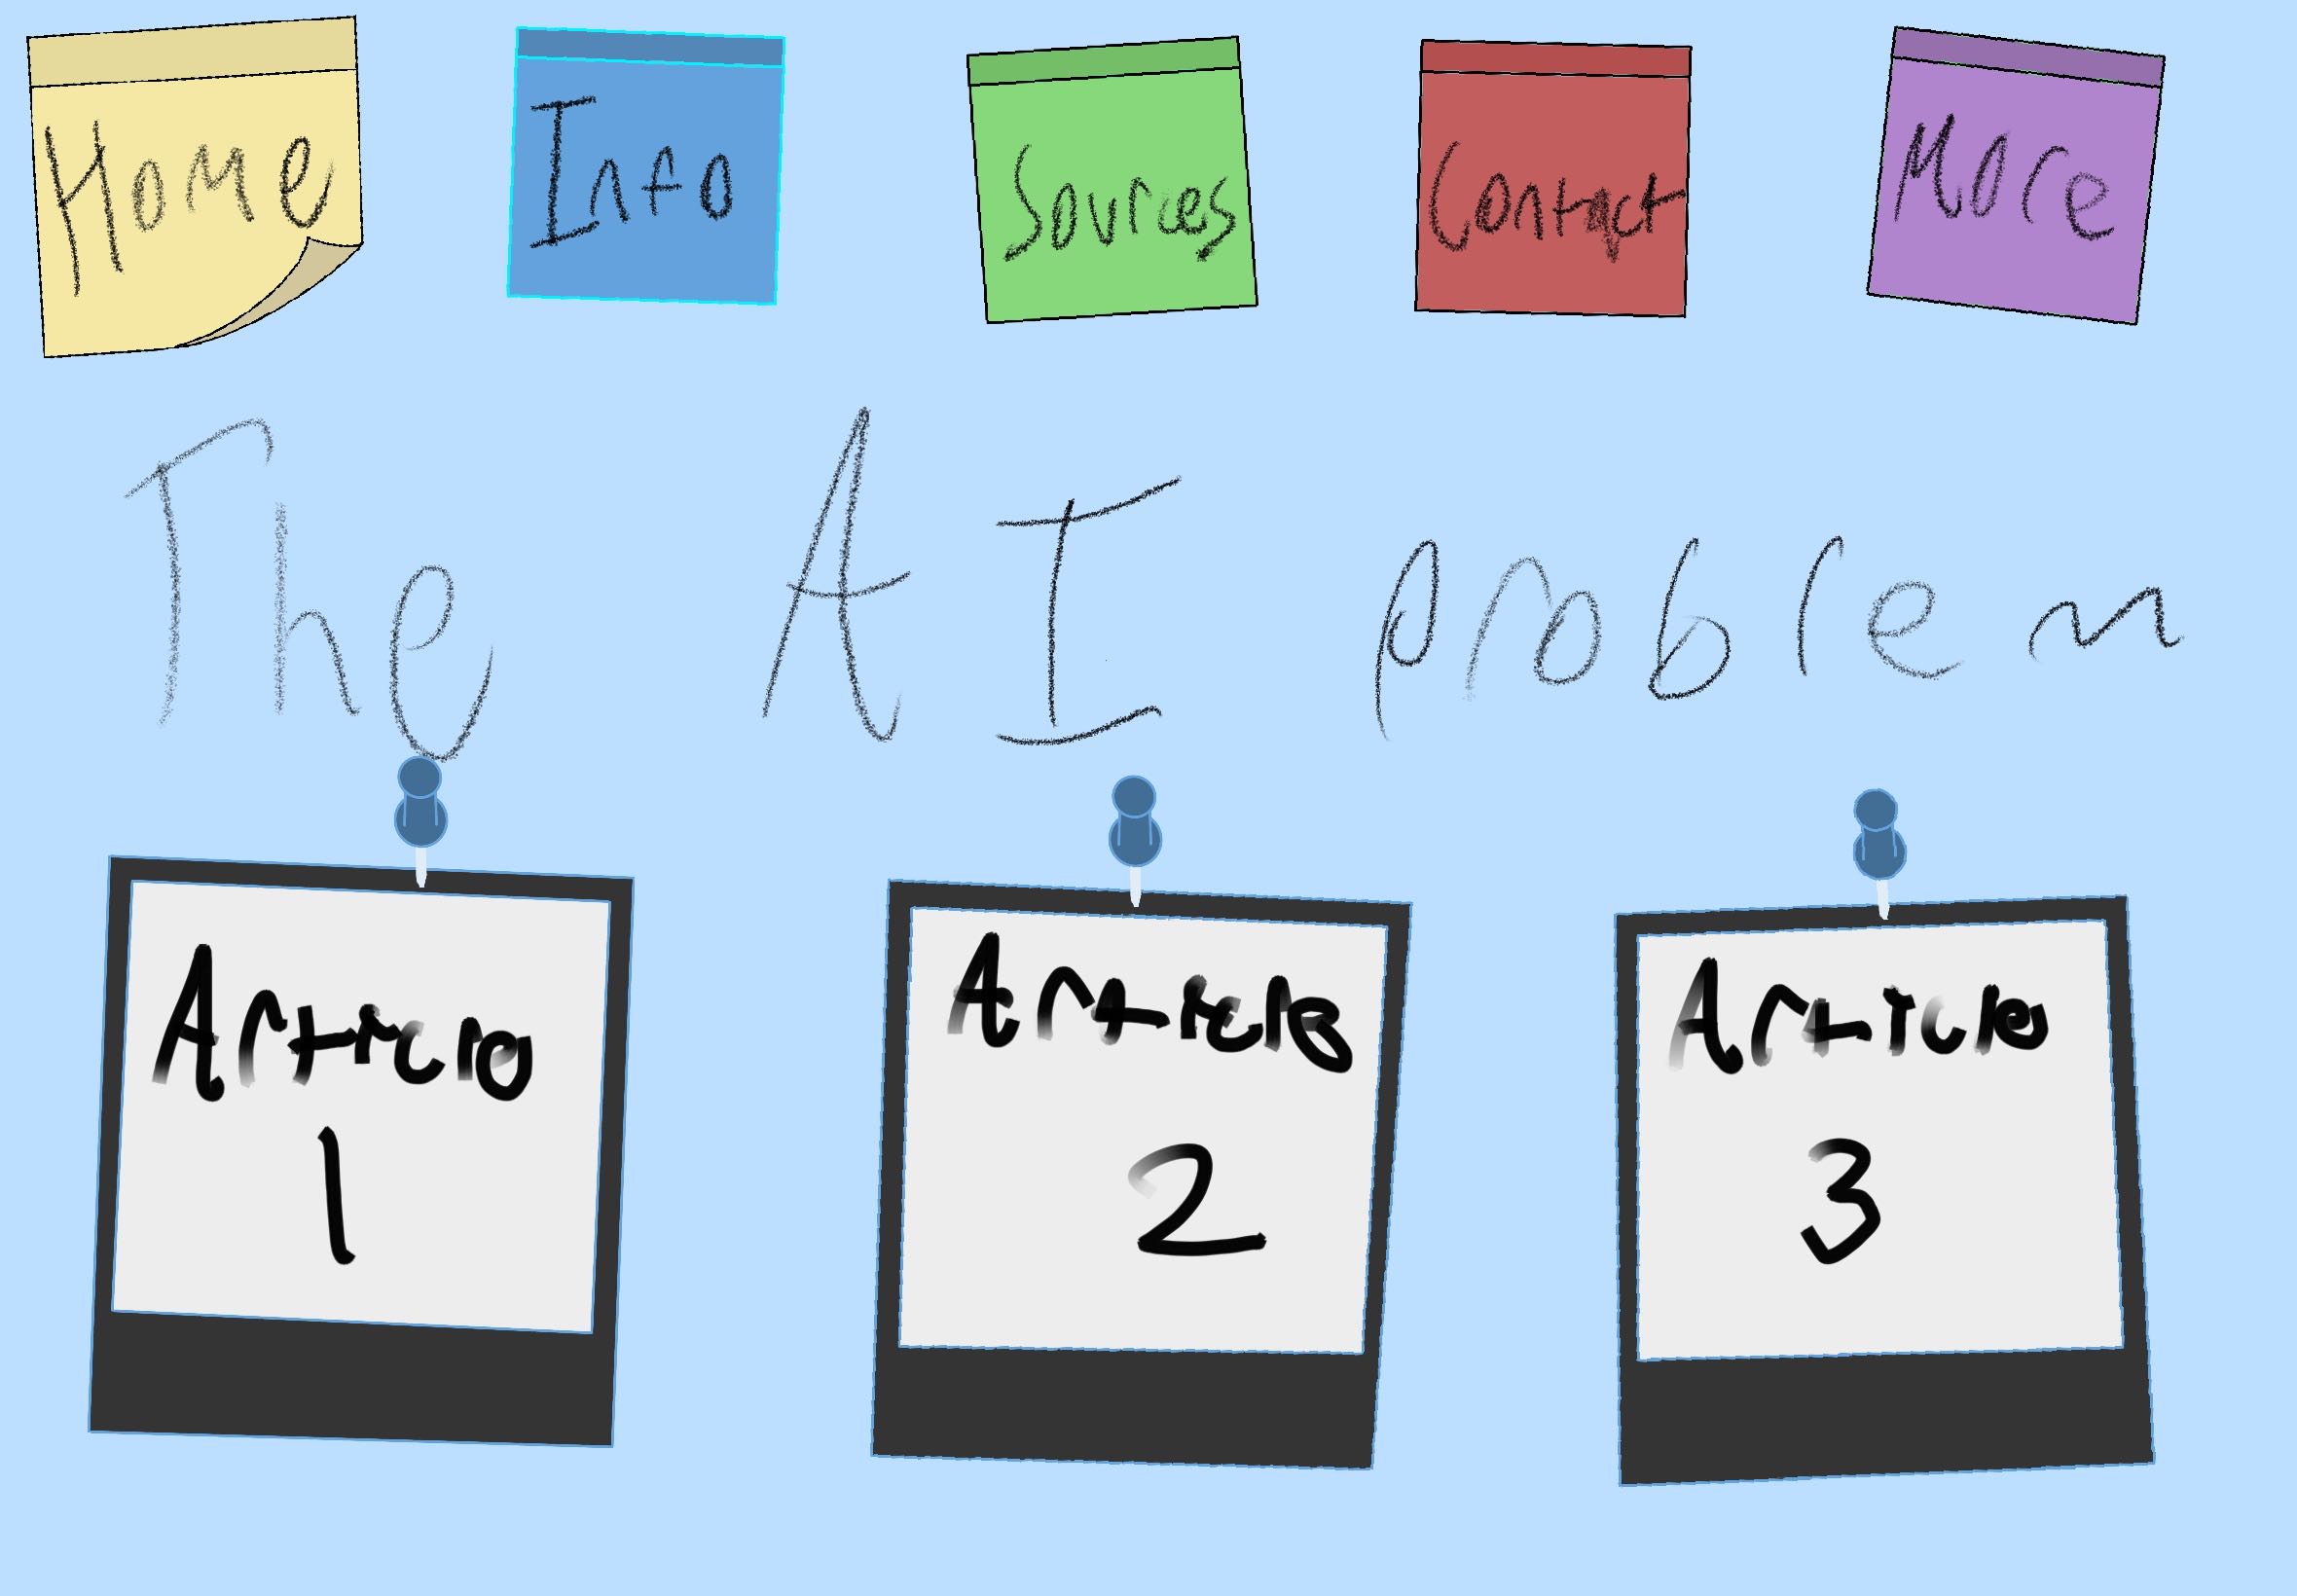 Home
Info
Sources
Contact
More
The AI problem
Article
1
Article
2
Article
3